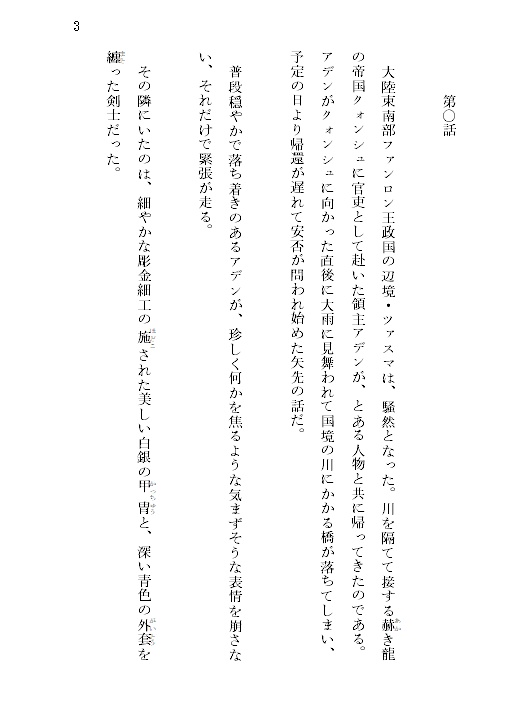 3
第〇話
大陸東南部ファンロン王政国の辺境・ツァスマは、騒然となった。川を隔てて接する赫き龍
の帝国クォンシュに官吏として赴いた領主アデンが、とある人物と共に帰ってきたのである。
アデンがクォンシュに向かった直後に大雨に見舞われて国境の川にかかる橋が落ちてしまい、
予定の日より帰還が遅れて安否が問われ始めた矢先の話だ。
普段穏やかで落ち着きのあるアデンが、珍しく何かを焦るような気まずそうな表情を崩さな
い、それだけで緊張が走る。
その隣にいたのは、細やかな彫金細工の施された美しい白銀の甲冑と、深い青色の外套を
纏った剣士だった。